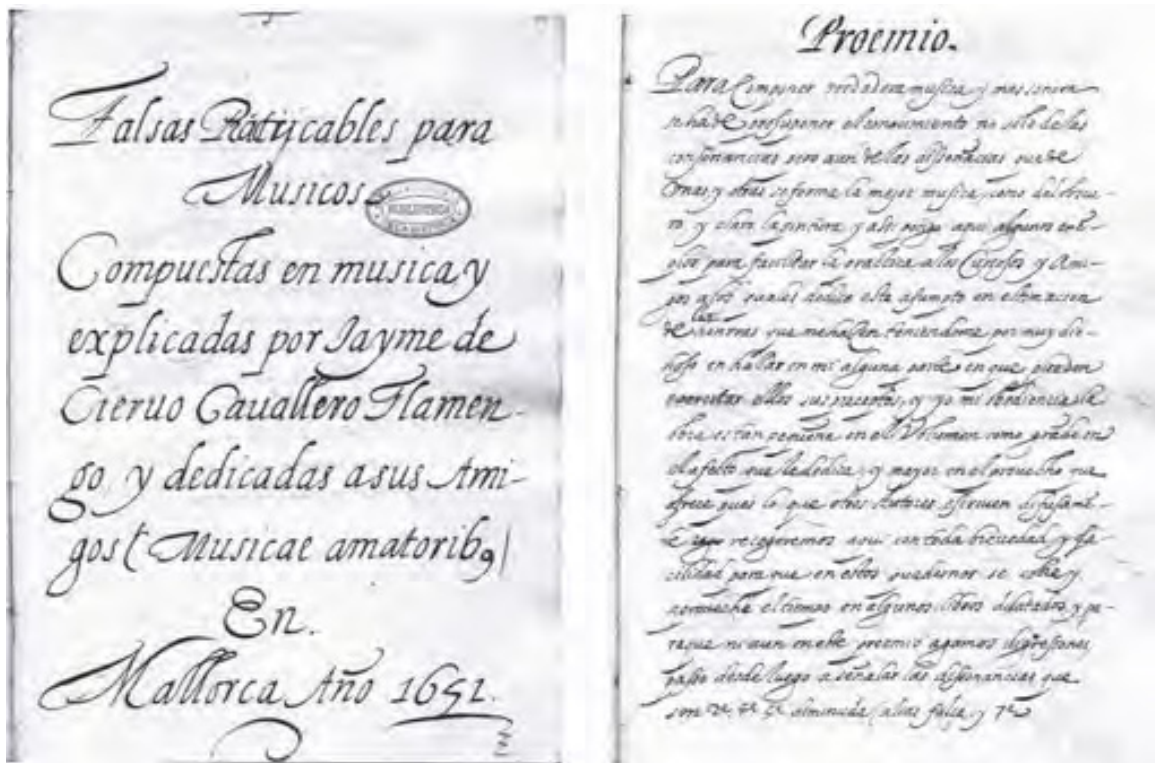 Falsas Praticables para
Musicos
BIBLIOTECA
Compuestas en musica y
explicadas por Jayme de
Cieruo Cauallero Flamen-
go y dedicadas a sus Ami-
gos (Musicae amatorib9)
En.
Mallorca Año 1651.
Proemio.
Para Componer verdadera musica y mas sonora
se ha de presuponer el conocimiento no solo de las
consonancias pero aun de las dissonãcias que de
Unas y otras se forma la mejor musica como del obscu-
ro y claro la pintura y asi pongo aqui algunos exẽ-
plos para facilitar la pratica a los Curiosos y Ami-
gos a los quales dedico este asumpto en estimacion
de las honras que me hasen teniendome por muy di-
choso en hallar en mi alguna parte en que puedan
exercitar ellos sus preceptos, y yo mi obediencia la
obra es tan pequeña en el Volumen como grãde en
el afecto que la dedica y mayor en el prouecho que
ofrece pues lo que otros Autores escriuen difusamẽ-
te recogeremos aqui con toda breuedad y fa-
cilidad para que en estos quadernos se cobre y
aproueche el tiempo en algunos libros dilatados y pa-
raque ni aun en este proemio agamos digresiones
paso desde luego a señalar las dissonancias que
son 2ª 4ª 5ª diminuida (alias falsa) y 7ª